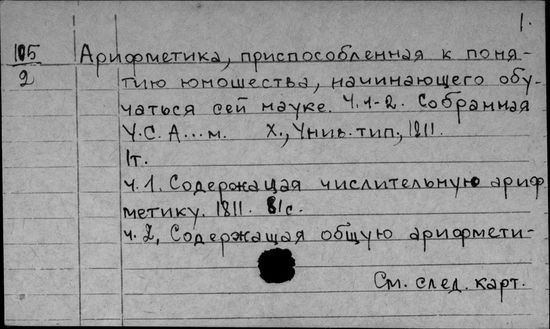 1.
105 Арифметика, приспособленная к поня-
2 тию юношества, начинающего обу-
чаться сей науке. Ч.1-2. Собранная
У.С. А...м. Х., Унив. тип., 1811.
1т.
ч.1. Содержащая числительную ариф
метику. 1811. 81с.
ч.2, Содержащая общую арифмети-
См. след. карт.